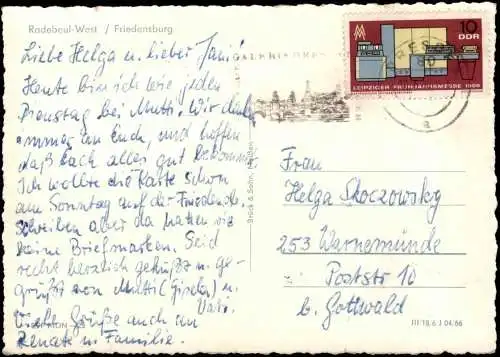 Radebeul-West / Friedensburg
Liebe Helga u. lieber Jani!
Heute bin ich wie jeden
Dienstag bei Mutti. Wir denken
immer an Euch, und hoffen
daß Euch alles gut bekommt.
Ich wollte die Karte schon
am Sonntag auf der Friedensb.
schreiben aber da hatten wir
keine Briefmarken. Seid
recht herzlich geküßt u. ge-
grüßt von Mutti (Gisela) u.
Vati.
Viele Grüße auch an
Renate u. Familie.
Brück & Sohn, Meißen
10
DDR
LEIPZIGER FRÜHJAHRSMESSE 1966
Frau
Helga Skoczowsky
253 Warnemünde
Poststr 10
b. Gottwald
III/18/6 J 04/66